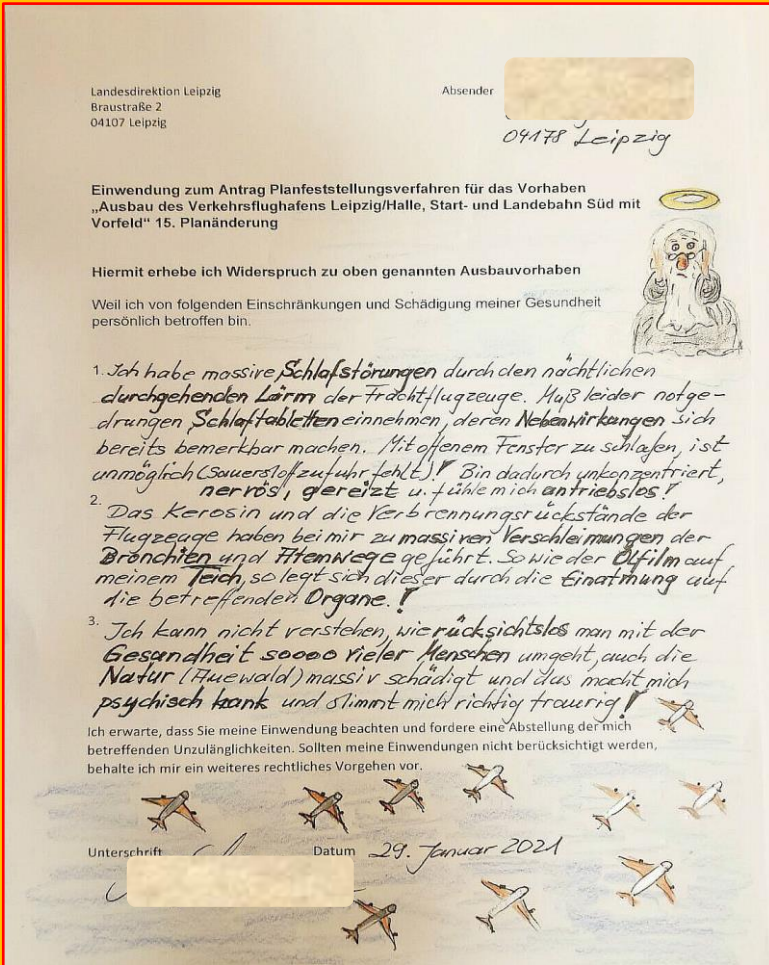 Landesdirektion Leipzig
Braustraße 2
04107 Leipzig
Absender
04178 Leipzig
Einwendung zum Antrag Planfeststellungsverfahren für das Vorhaben
„Ausbau des Verkehrsflughafens Leipzig/Halle, Start- und Landebahn Süd mit
Vorfeld“ 15. Planänderung
Hiermit erhebe ich Widerspruch zu oben genannten Ausbauvorhaben
Weil ich von folgenden Einschränkungen und Schädigung meiner Gesundheit
persönlich betroffen bin.
1. Ich habe massive Schlafstörungen durch den nächtlichen
durchgehenden Lärm der Frachtflugzeuge. Muß leider notge-
drungen Schlaftabletten einnehmen, deren Nebenwirkungen sich
bereits bemerkbar machen. Mit offenem Fenster zu schlafen, ist
unmöglich (Sauerstoffzufuhr fehlt)! Bin dadurch unkonzentriert,
nervös, gereizt u. fühle mich antriebslos!
2. Das Kerosin und die Verbrennungsrückstände der
Flugzeuge haben bei mir zu massiven Verschleimungen der
Bronchien und Atemwege geführt. So wie der Ölfilm auf
meinem Teich, so legt sich dieser durch die Einatmung auf
die betreffenden Organe.!
3. Ich kann nicht verstehen, wie rücksichtslos man mit der
Gesundheit soooo vieler Menschen umgeht, auch die
Natur (Auewald) massiv schädigt und das macht mich
psychisch krank und stimmt mich richtig traurig!
Ich erwarte, dass Sie meine Einwendung beachten und fordere eine Abstellung der mich
betreffenden Unzulänglichkeiten. Sollten meine Einwendungen nicht berücksichtigt werden,
behalte ich mir ein weiteres rechtliches Vorgehen vor.
Unterschrift
Datum 29. Januar 2021